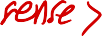 sense >